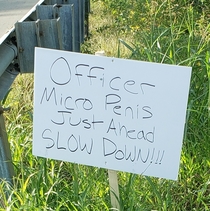 Officer
Micro Penis
Just Ahead
SLOW DOWN!!!